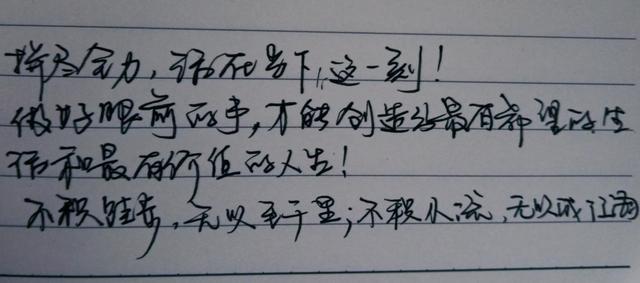 拼尽全力，活在当下，这一刻！
做好眼前的事，才能创造出最有希望的生
活和最有价值的人生！
不积跬步，无以至千里；不积小流，无以成江海